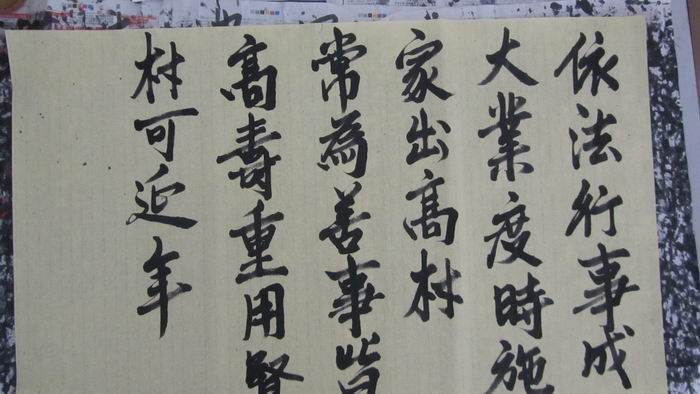 依法行事成
大業度時施
家出高材
常為善事皆
高壽重用賢
材可延年